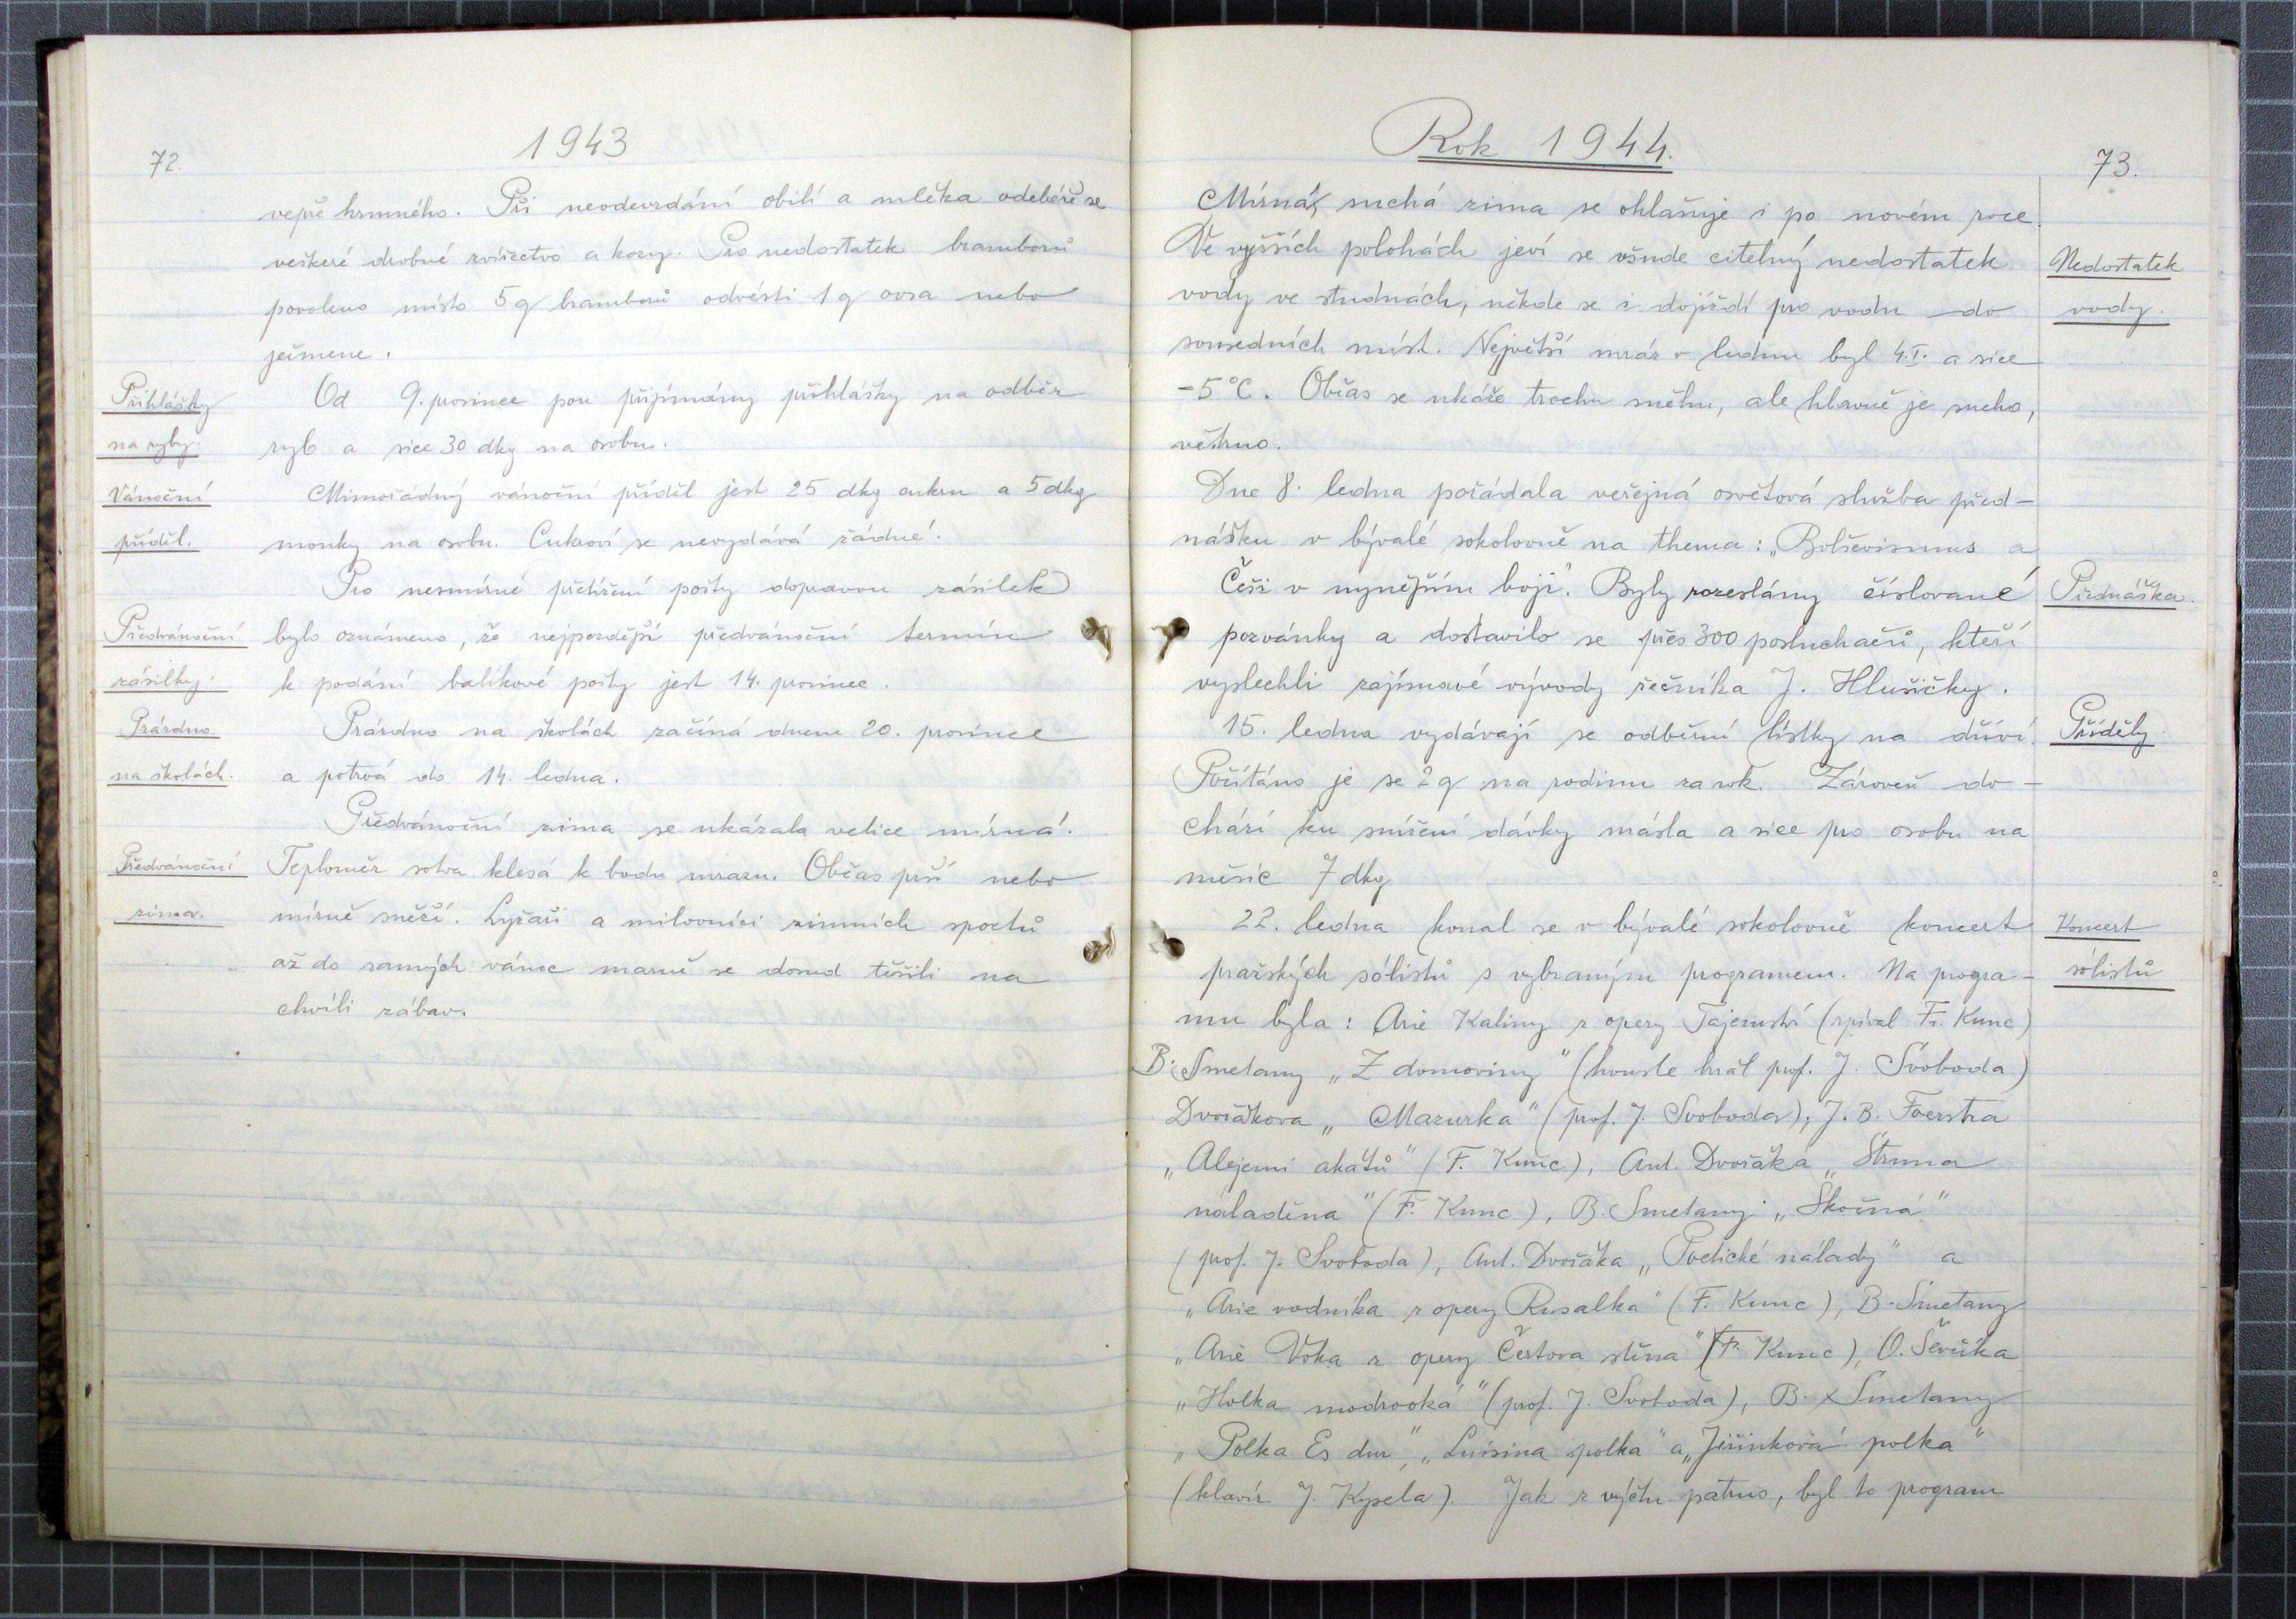 72.
1943
vepře krmného. Při neodevzdání obilí a mléka odebéře se
veškeré drobné zvířectvo a kozy. Pro nedostatek bramborů
povoleno místo 5 q bramborů odvésti 1 q ovsa nebo
ječmene.
Přihlášky
na ryby.
Od 9. prosince jsou přijímány přihlášky na odběr
ryb a sice 30 dkg na osobu.
Vánoční
příděl.
Mimořádný vánoční příděl jest 25 dkg cukru a 5 dkg
mouky na osobu. Cukroví se nevydává žádné.
Pro nesmírné přetížení pošty dopravou zásilek
Předvánoční
zásilky.
bylo oznámeno, že nejpozdější předvánoční termín
k podání balíkové pošty jest 14. prosinec.
Prázdno
na školách.
Prázdno na školách začíná dnem 20. prosince
a potrvá do 14. ledna.
Předvánoční zima se ukázala velice mírná.
Předvánoční
zima.
Teploměr sotva klesá k bodu mrazu. Občas prší nebo
mírně sněží. Lyžaři a milovníci zimních sportů
až do samých vánoc marně se dosud těšili na
chvíli zábav.
Rok 1944.
73.
Mírná, suchá zima se ohlašuje i po novém roce.
Ve vyšších polohách jeví se všude citelný nedostatek
Nedostatek
vody.
vody ve studnách, někde se i dojíždí pro vodu do
sousedních míst. Největší mráz v lednu byl 4.I. a sice
-5°C. Občas se ukáže trochu sněhu, ale hlavně je sucho,
větrno.
Dne 8. ledna pořádala veřejná osvětová služba před-
nášku v bývalé sokolovně na thema: „Bolševismus a
Češi v nynějším boji". Byly rozeslány číslované
Přednáška.
pozvánky a dostavilo se přes 300 posluchačů, kteří
vyslechli zajímavé vývody řečníka J. Hlušičky.
15. ledna vydávají se odběrní lístky na dříví.
Příděly
Počítáno je se 2 q na rodinu za rok. Zároveň do-
chází ku snížení dávky másla a sice pro osobu na
měsíc 7 dkg
22. ledna konal se v bývalé sokolovně koncert
Koncert
sólistů
pražských sólistů s vybraným programem. Na progra-
mu byla: Arie Kaliny z opery Tajemství (zpíval Fr. Kunc)
B. Smetany „Z domoviny" (housle hrál prof. J. Svoboda)
Dvořákova „Mazurka" (prof. J. Svoboda), J. B. Foerstra
„Alejemi akátů" (F. Kunc), Ant. Dvořáka „Struna
naladěna" (F. Kunc), B. Smetany „Skočná"
(prof. J. Svoboda), Ant. Dvořáka „Poetické nálady" a
„Arie vodníka z opery Rusalka" (F. Kunc), B. Smetany
„Arie Voka z opery Čertova stěna" (F. Kunc), O. Ševčíka
„Holka modrooká" (prof. J. Svoboda), B. Smetany
„Polka Es dur", „Luisina polka" a „Jiřinková polka"
(klavír J. Kysela). Jak z výčtu patrno, byl to program